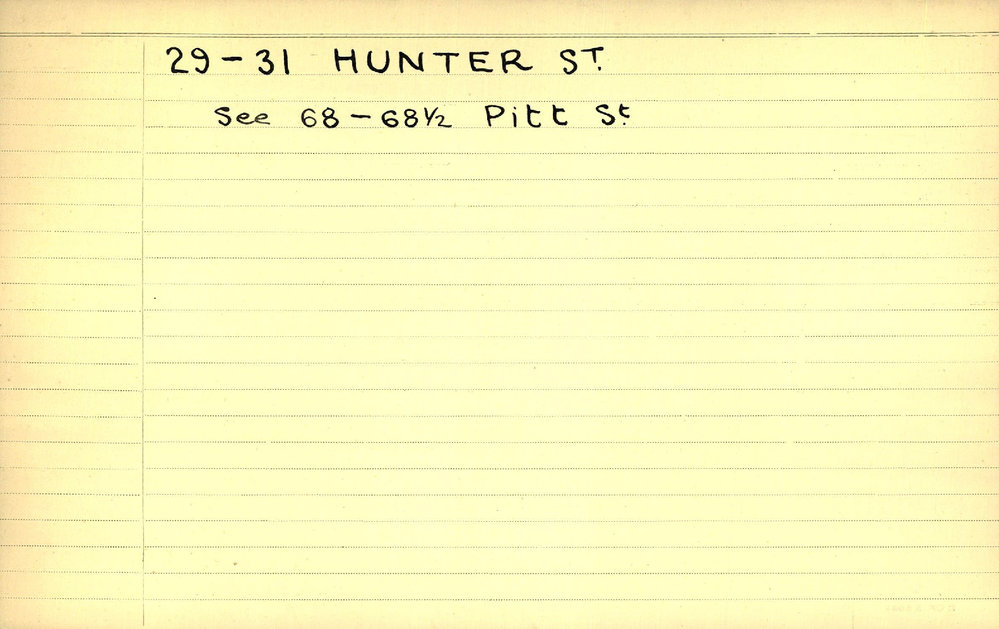 29-31 HUNTER ST.
See 68-68½ Pitt St.